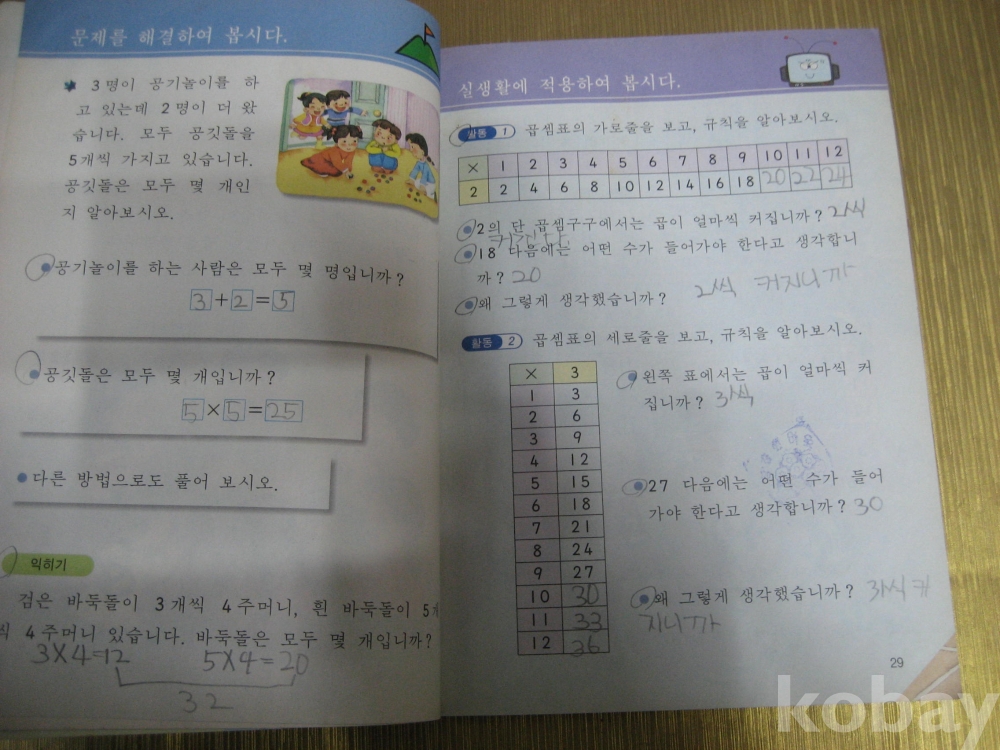 문제를 해결하여 봅시다.
3명이 공기놀이를 하
고 있는데 2명이 더 왔
습니다. 모두 공깃돌을
5개씩 가지고 있습니다.
공깃돌은 모두 몇 개인
지 알아보시오.
공기놀이를 하는 사람은 모두 몇 명입니까?
3+2=5
공깃돌은 모두 몇 개입니까?
5×5=25
다른 방법으로도 풀어 보시오.
익히기
검은 바둑돌이 3개씩 4주머니, 흰 바둑돌이 5개
씩 4주머니 있습니다. 바둑돌은 모두 몇 개입니까?
3X4=12 5X4=20
32
실생활에 적용하여 봅시다.
활동 1 곱셈표의 가로줄을 보고, 규칙을 알아보시오.
× 1 2 3 4 5 6 7 8 9 10 11 12
2 2 4 6 8 10 12 14 16 18 20 22 24
2의 단 곱셈구구에서는 곱이 얼마씩 커집니까? 2씩
커집니다
18 다음에는 어떤 수가 들어가야 한다고 생각합니
까? 20
왜 그렇게 생각했습니까? 2씩 커지니까
활동 2 곱셈표의 세로줄을 보고, 규칙을 알아보시오.
× 3
1 3
2 6
3 9
4 12
5 15
6 18
7 21
8 24
9 27
10 30
11 33
12 36
왼쪽 표에서는 곱이 얼마씩 커
집니까? 3씩
27 다음에는 어떤 수가 들어
가야 한다고 생각합니까? 30
왜 그렇게 생각했습니까? 3씩 커
지니까
29
kobay